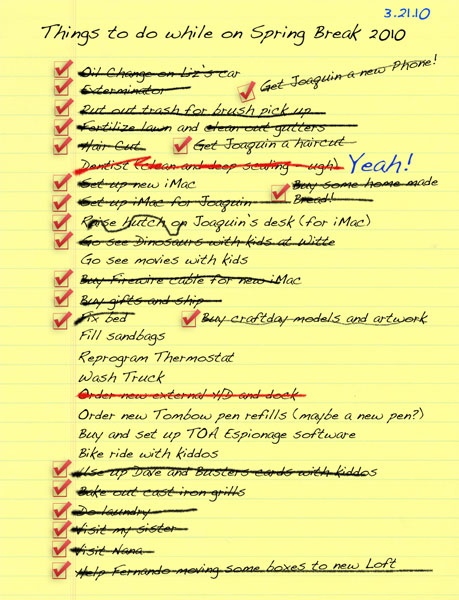 3.21.10
Things to do while on Spring Break 2010
Oil Change on Liz's car
Exterminator
Get Joaquin a new Phone!
Put out trash for brush pick up
Fertilize lawn and clean out gutters
Hair Cut
Get Joaquin a haircut
Dentist (clean and deep scaling - ugh) Yeah!
Set up new iMac
Buy some home made
Bread!
Set up iMac for Joaquin
Raise Hutch on Joaquin's desk (for iMac)
Go see Dinosaurs with kids at Witte
Go see movies with kids
Buy Firewire cable for new iMac
Buy gifts and ship
Fix bed
Buy craftday models and artwork
Fill sandbags
Reprogram Thermostat
Wash Truck
Order new external and dock
Order new Tombow pen refills (maybe a new pen?)
Buy and set up TOA Espionage software
Bike ride with kiddos
Use up Dave and Busters cards with kiddos
Bake out cast iron grills
Do laundry
Visit my sister
Visit Nana
Help Fernando moving some boxes to new Loft